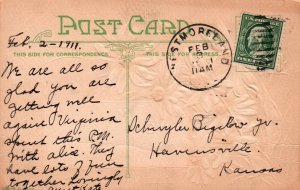 POST CARD
Feb. 2-1911.
THIS SIDE FOR CORRESPONDENCE
THIS SIDE FOR ADDRESS.
WESTMORELAND
FEB
2
11AM
We are all so
glad you are
getting well
again Virginia
spent this P.M.
with alis. They
have lots of fun
together Lovingly
Schuyler Bigelow Jr.
Havensville.
Kansas